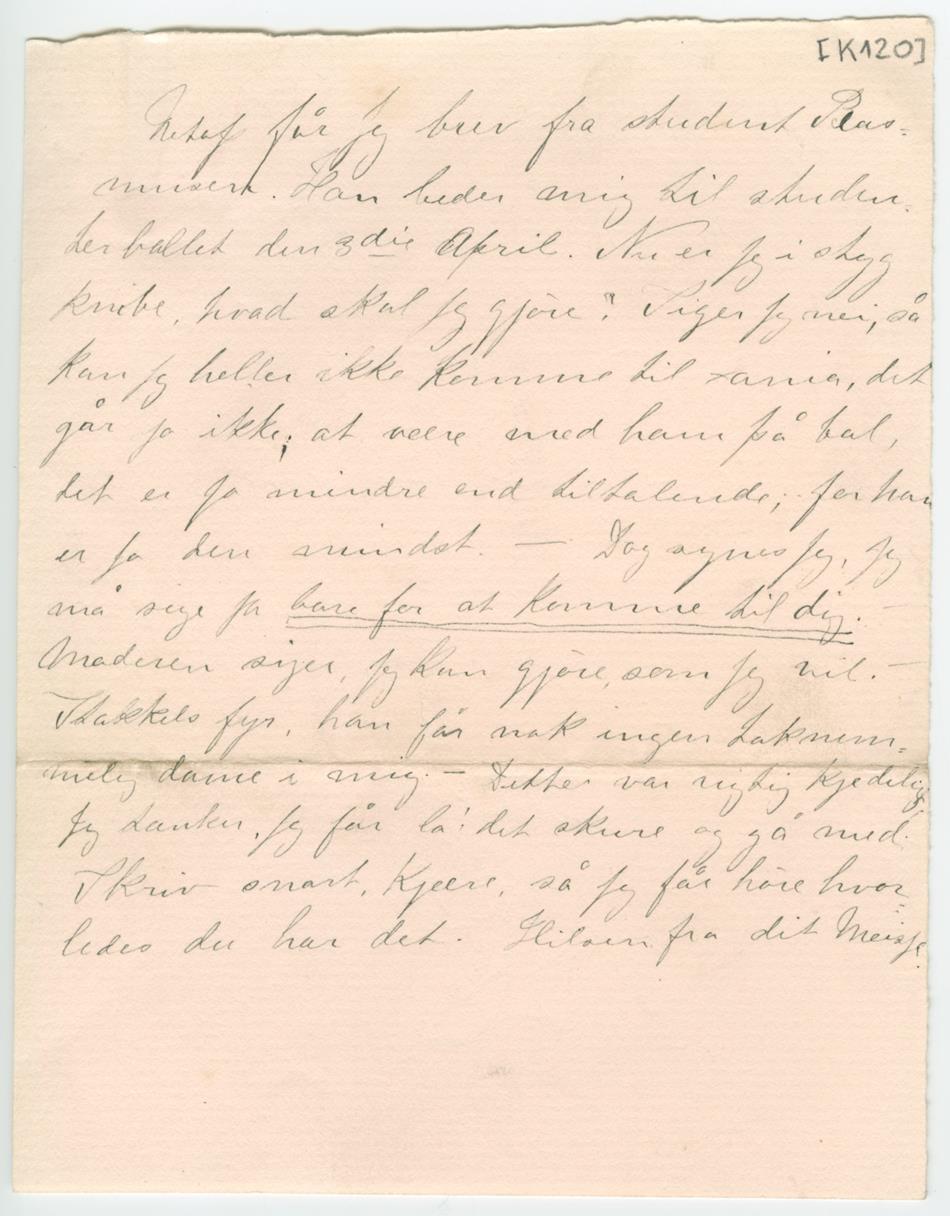 [K120]
Netop får jeg brev fra student Ras-
musen. Han beder mig til studen-
terballet den 3die April. Nu er jeg i styg
knibe, hvad skal jeg gjöre? Siger jeg nei, så
kan jeg heller ikke komme til xania, det
går jo ikke; at være med ham på bal,
det er jo mindre end tiltalende; for han
er jo den mindst. — Dog synes jeg, jeg
må sige ja bare for at komme til dig. —
Moderen siger, jeg kan gjöre, som jeg vil. —
Stakkels fyr, han får nok ingen taknem-
melig dame i mig. — Dette var rigtig kjedelig.
Jeg tænker, jeg får la' det skure og gå med.
Skriv snart, kjære, så jeg får höre hvor-
ledes du har det. Hilsen fra dit Meisje.